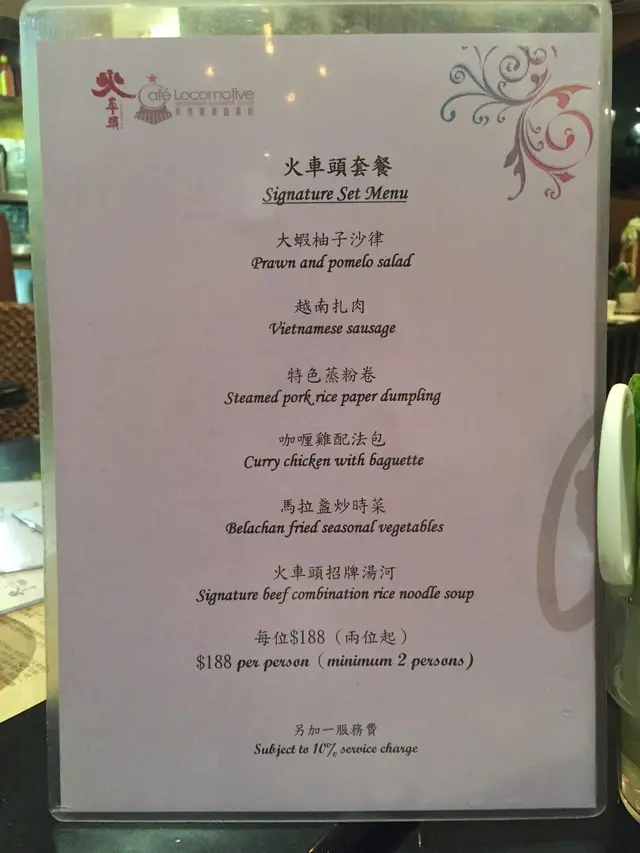 火車頭
Café Locomotive
火車頭套餐
Signature Set Menu
大蝦柚子沙律
Prawn and pomelo salad
越南扎肉
Vietnamese sausage
特色蒸粉卷
Steamed pork rice paper dumpling
咖喱雞配法包
Curry chicken with baguette
馬拉盞炒時菜
Belachan fried seasonal vegetables
火車頭招牌湯河
Signature beef combination rice noodle soup
每位$188（兩位起）
$188 per person (minimum 2 persons)
另加一服務費
Subject to 10% service charge